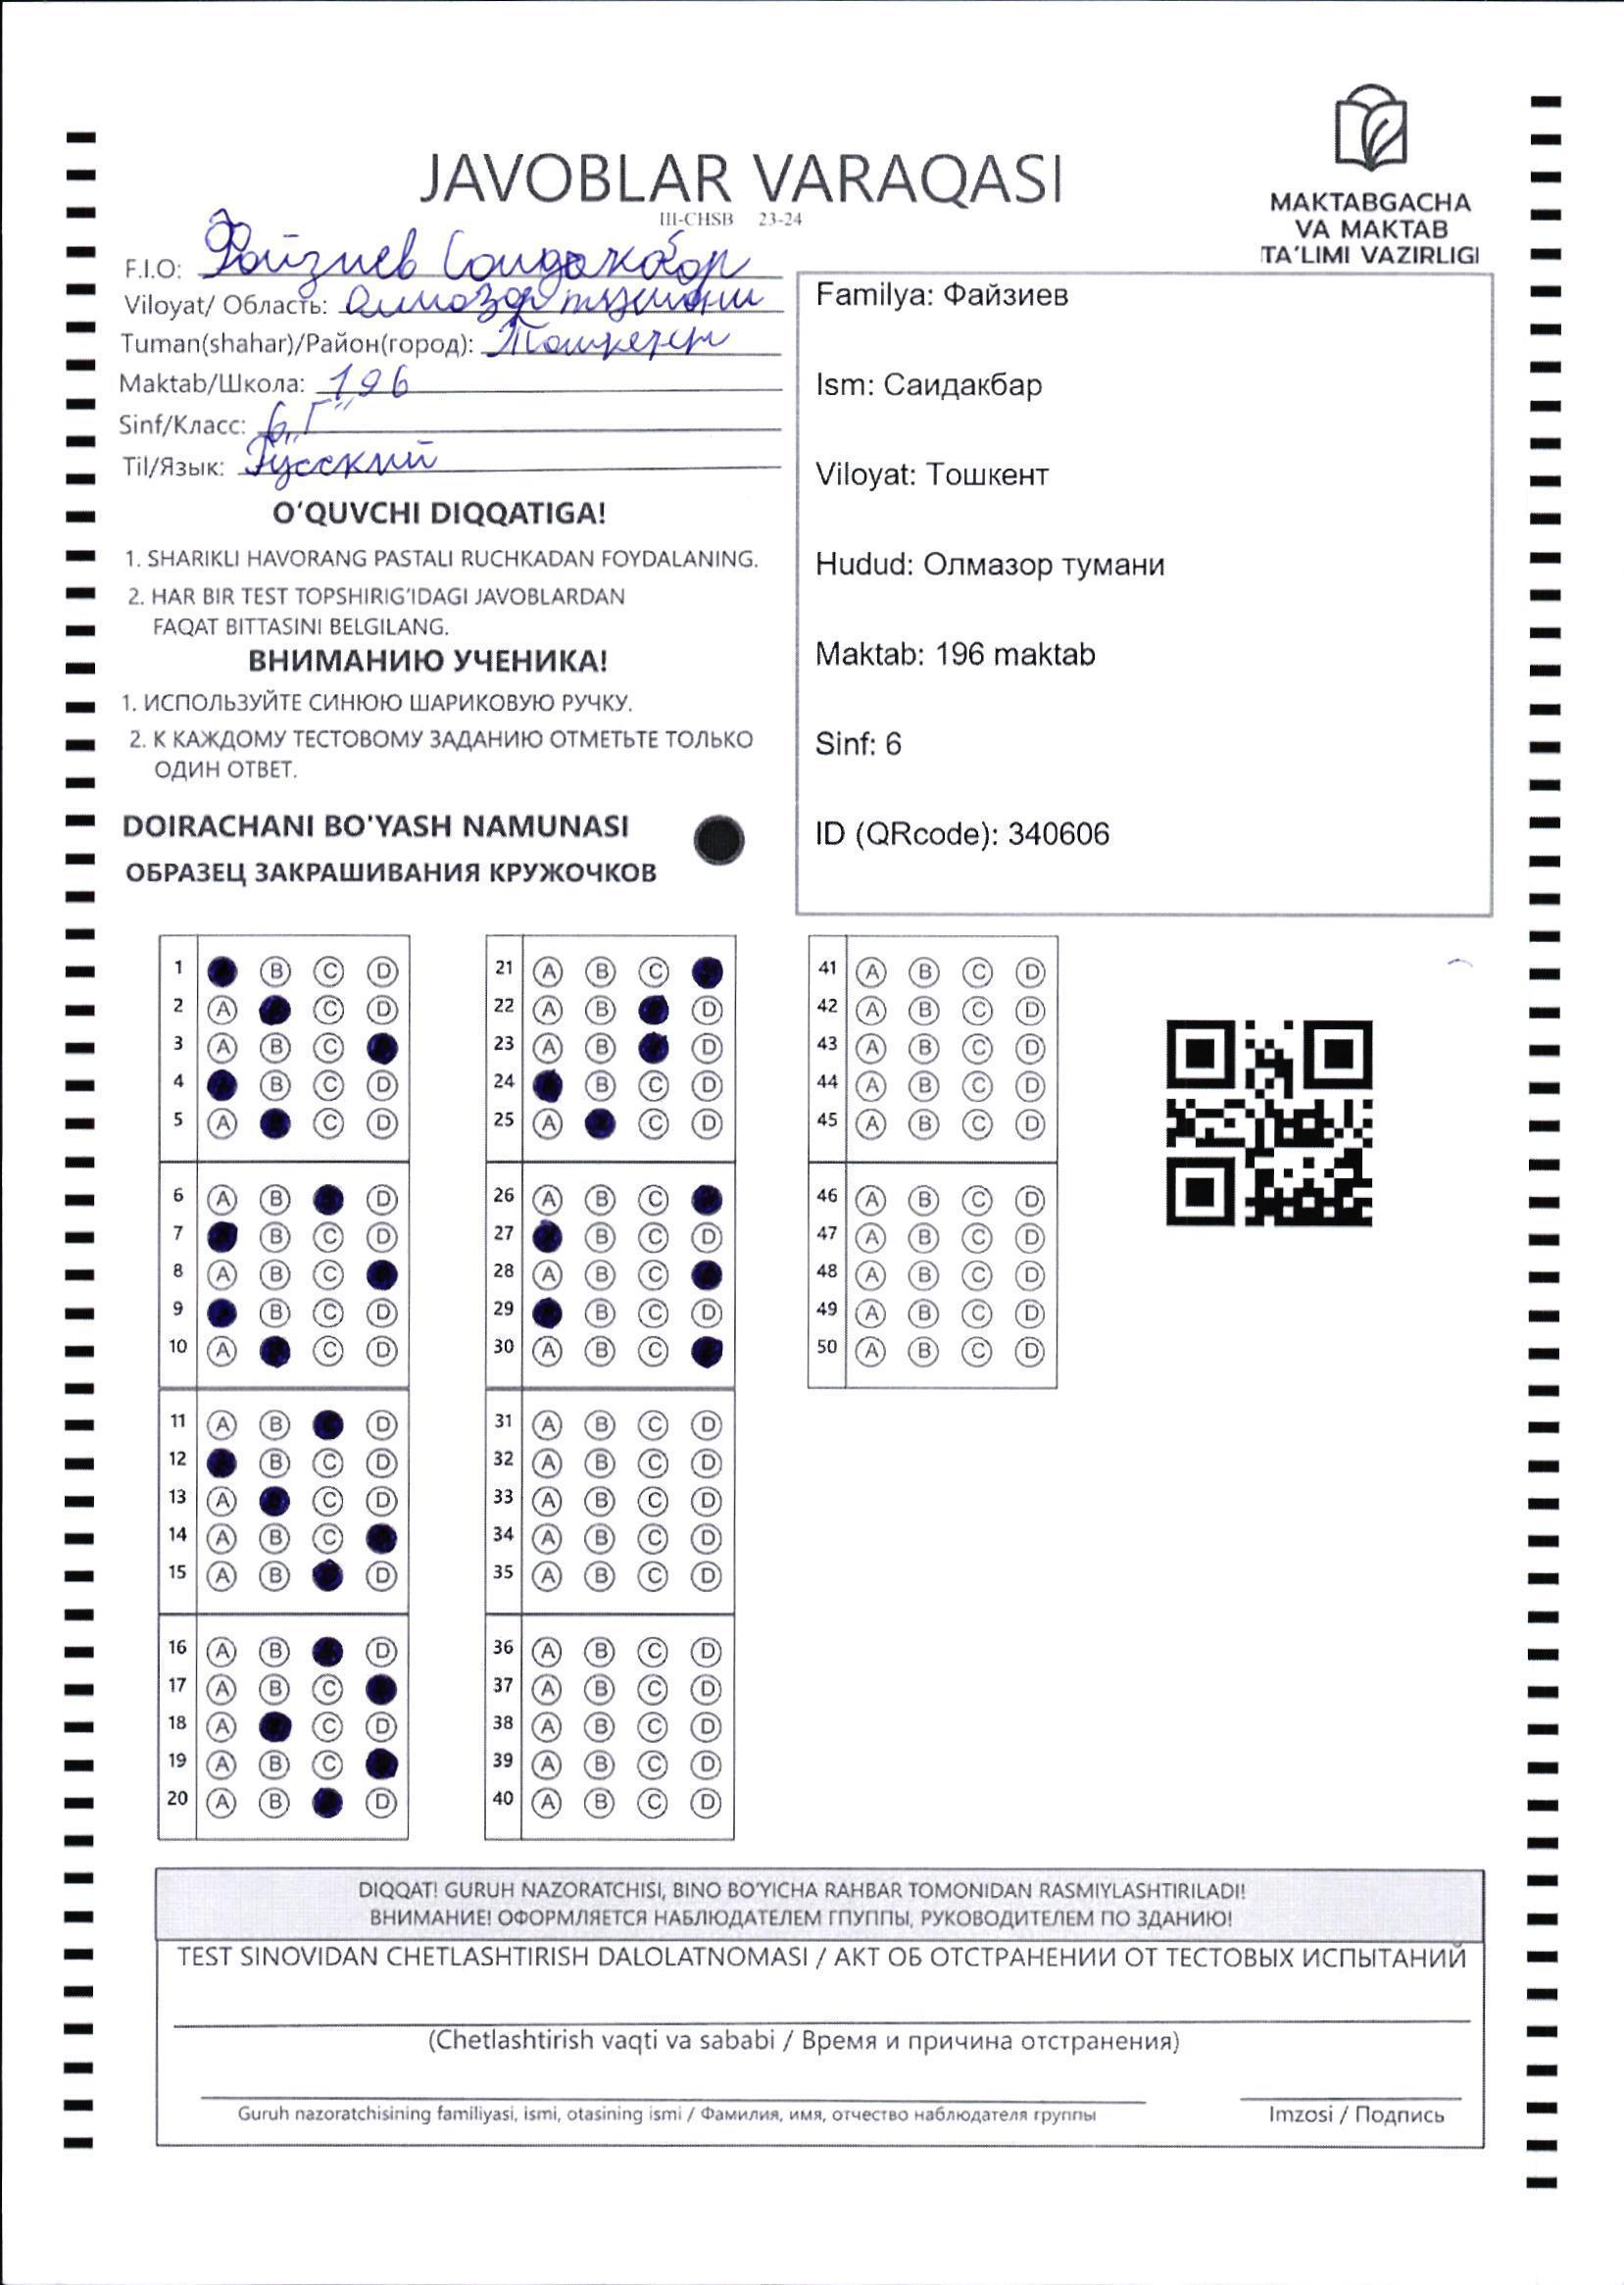 JAVOBLAR VARAQASI
III-CHSB 23-24
MAKTABGACHA
VA MAKTAB
TA'LIMI VAZIRLIGI
F.I.O: Файзиев Саидакбар
Viloyat/ Область: Олмазор тумани
Tuman(shahar)/Район(город): Тошкент
Maktab/Школа: 196
Sinf/Класс: 6 „Г"
Til/Язык: Русский
O'QUVCHI DIQQATIGA!
1. SHARIKLI HAVORANG PASTALI RUCHKADAN FOYDALANING.
2. HAR BIR TEST TOPSHIRIG'IDAGI JAVOBLARDAN
FAQAT BITTASINI BELGILANG.
ВНИМАНИЮ УЧЕНИКА!
1. ИСПОЛЬЗУЙТЕ СИНЮЮ ШАРИКОВУЮ РУЧКУ.
2. К КАЖДОМУ ТЕСТОВОМУ ЗАДАНИЮ ОТМЕТЬТЕ ТОЛЬКО
ОДИН ОТВЕТ.
DOIRACHANI BO'YASH NAMUNASI
ОБРАЗЕЦ ЗАКРАШИВАНИЯ КРУЖОЧКОВ
Familya: Файзиев
Ism: Саидакбар
Viloyat: Тошкент
Hudud: Олмазор тумани
Maktab: 196 maktab
Sinf: 6
ID (QRcode): 340606
1 B C D
2 A C D
3 A B C
4 B C D
5 A C D
6 A B D
7 B C D
8 A B C
9 B C D
10 A C D
11 A B D
12 B C D
13 A C D
14 A B C
15 A B D
16 A B D
17 A B C
18 A C D
19 A B C
20 A B D
21 A B C
22 A B D
23 A B D
24 B C D
25 A C D
26 A B C
27 B C D
28 A B C
29 B C D
30 A B C
31 A B C D
32 A B C D
33 A B C D
34 A B C D
35 A B C D
36 A B C D
37 A B C D
38 A B C D
39 A B C D
40 A B C D
41 A B C D
42 A B C D
43 A B C D
44 A B C D
45 A B C D
46 A B C D
47 A B C D
48 A B C D
49 A B C D
50 A B C D
DIQQAT! GURUH NAZORATCHISI, BINO BO'YICHA RAHBAR TOMONIDAN RASMIYLASHTIRILADI!
ВНИМАНИЕ! ОФОРМЛЯЕТСЯ НАБЛЮДАТЕЛЕМ ГПУППЫ, РУКОВОДИТЕЛЕМ ПО ЗДАНИЮ!
TEST SINOVIDAN CHETLASHTIRISH DALOLATNOMASI / АКТ ОБ ОТСТРАНЕНИИ ОТ ТЕСТОВЫХ ИСПЫТАНИЙ
(Chetlashtirish vaqti va sababi / Время и причина отстранения)
Guruh nazoratchisining familiyasi, ismi, otasining ismi / Фамилия, имя, отчество наблюдателя группы
Imzosi / Подпись